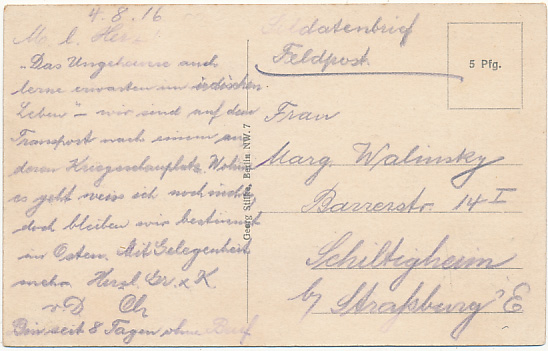 4.8.16
M. l. Herz!
„Das Ungeheure auch
lerne erwarten im irdischen
Leben" – wir sind auf dem
Transport nach einem an
deren Kriegsschauplatz. Wohin
es geht weiss ich noch nicht,
doch bleiben wir bestimmt
im Osten. Mit Gelegenheit
mehr. Herzl. Gr. u K.
v. D
Bin seit 8 Tagen ohne Brief
Georg Stilke, Berlin NW. 7
Soldatenbrief
Feldpost.
5 Pfg.
Frau
Marg Walinsky
Barrerstr. 14 I
Schiltigheim
b/ Straßburg i. E